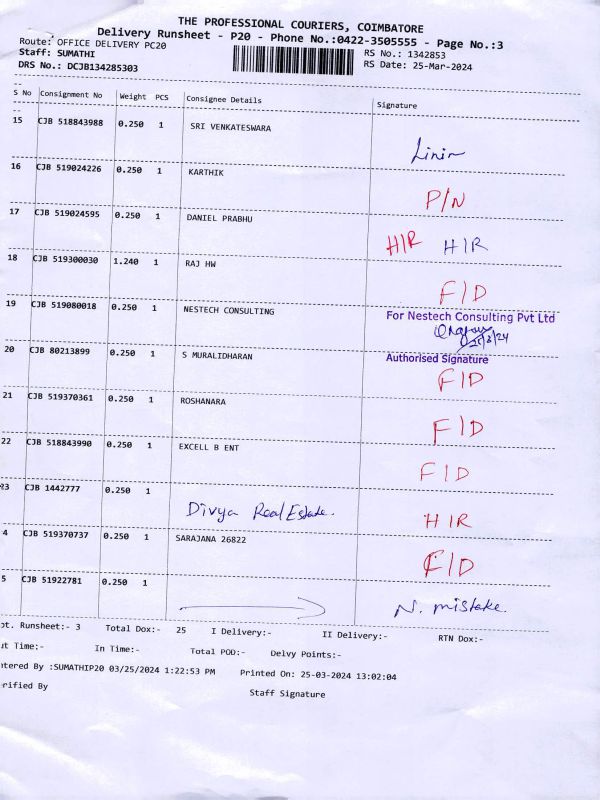 THE PROFESSIONAL COURIERS, COIMBATORE
Delivery Runsheet - P20 - Phone No.:0422-3505555 - Page No.:3
Route: OFFICE DELIVERY PC20 RS No.: 1342853
Staff: SUMATHI RS Date: 25-Mar-2024
DRS No.: DCJB134285303
S No Consignment No Weight PCS Consignee Details Signature
15 CJB 518843988 0.250 1 SRI VENKATESWARA
16 CJB 519024226 0.250 1 KARTHIK P/N
17 CJB 519024595 0.250 1 DANIEL PRABHU H/R H/R
18 CJB 519300030 1.240 1 RAJ HW F/D
19 CJB 519080018 0.250 1 NESTECH CONSULTING For Nestech Consulting Pvt Ltd
25/3/24
Authorised Signature
20 CJB 80213899 0.250 1 S MURALIDHARAN F/D
21 CJB 519370361 0.250 1 ROSHANARA F/D
22 CJB 518843990 0.250 1 EXCELL B ENT F/D
23 CJB 1442777 0.250 1 Divya Real Estate. H/R
4 CJB 519370737 0.250 1 SARAJANA 26822 F/D
5 CJB 51922781 0.250 1 N. mistake.
pt. Runsheet:- 3 Total Dox:- 25 I Delivery:- II Delivery:- RTN Dox:-
ut Time:- In Time:- Total POD:- Delvy Points:-
ntered By :SUMATHIP20 03/25/2024 1:22:53 PM Printed On: 25-03-2024 13:02:04
rified By Staff Signature